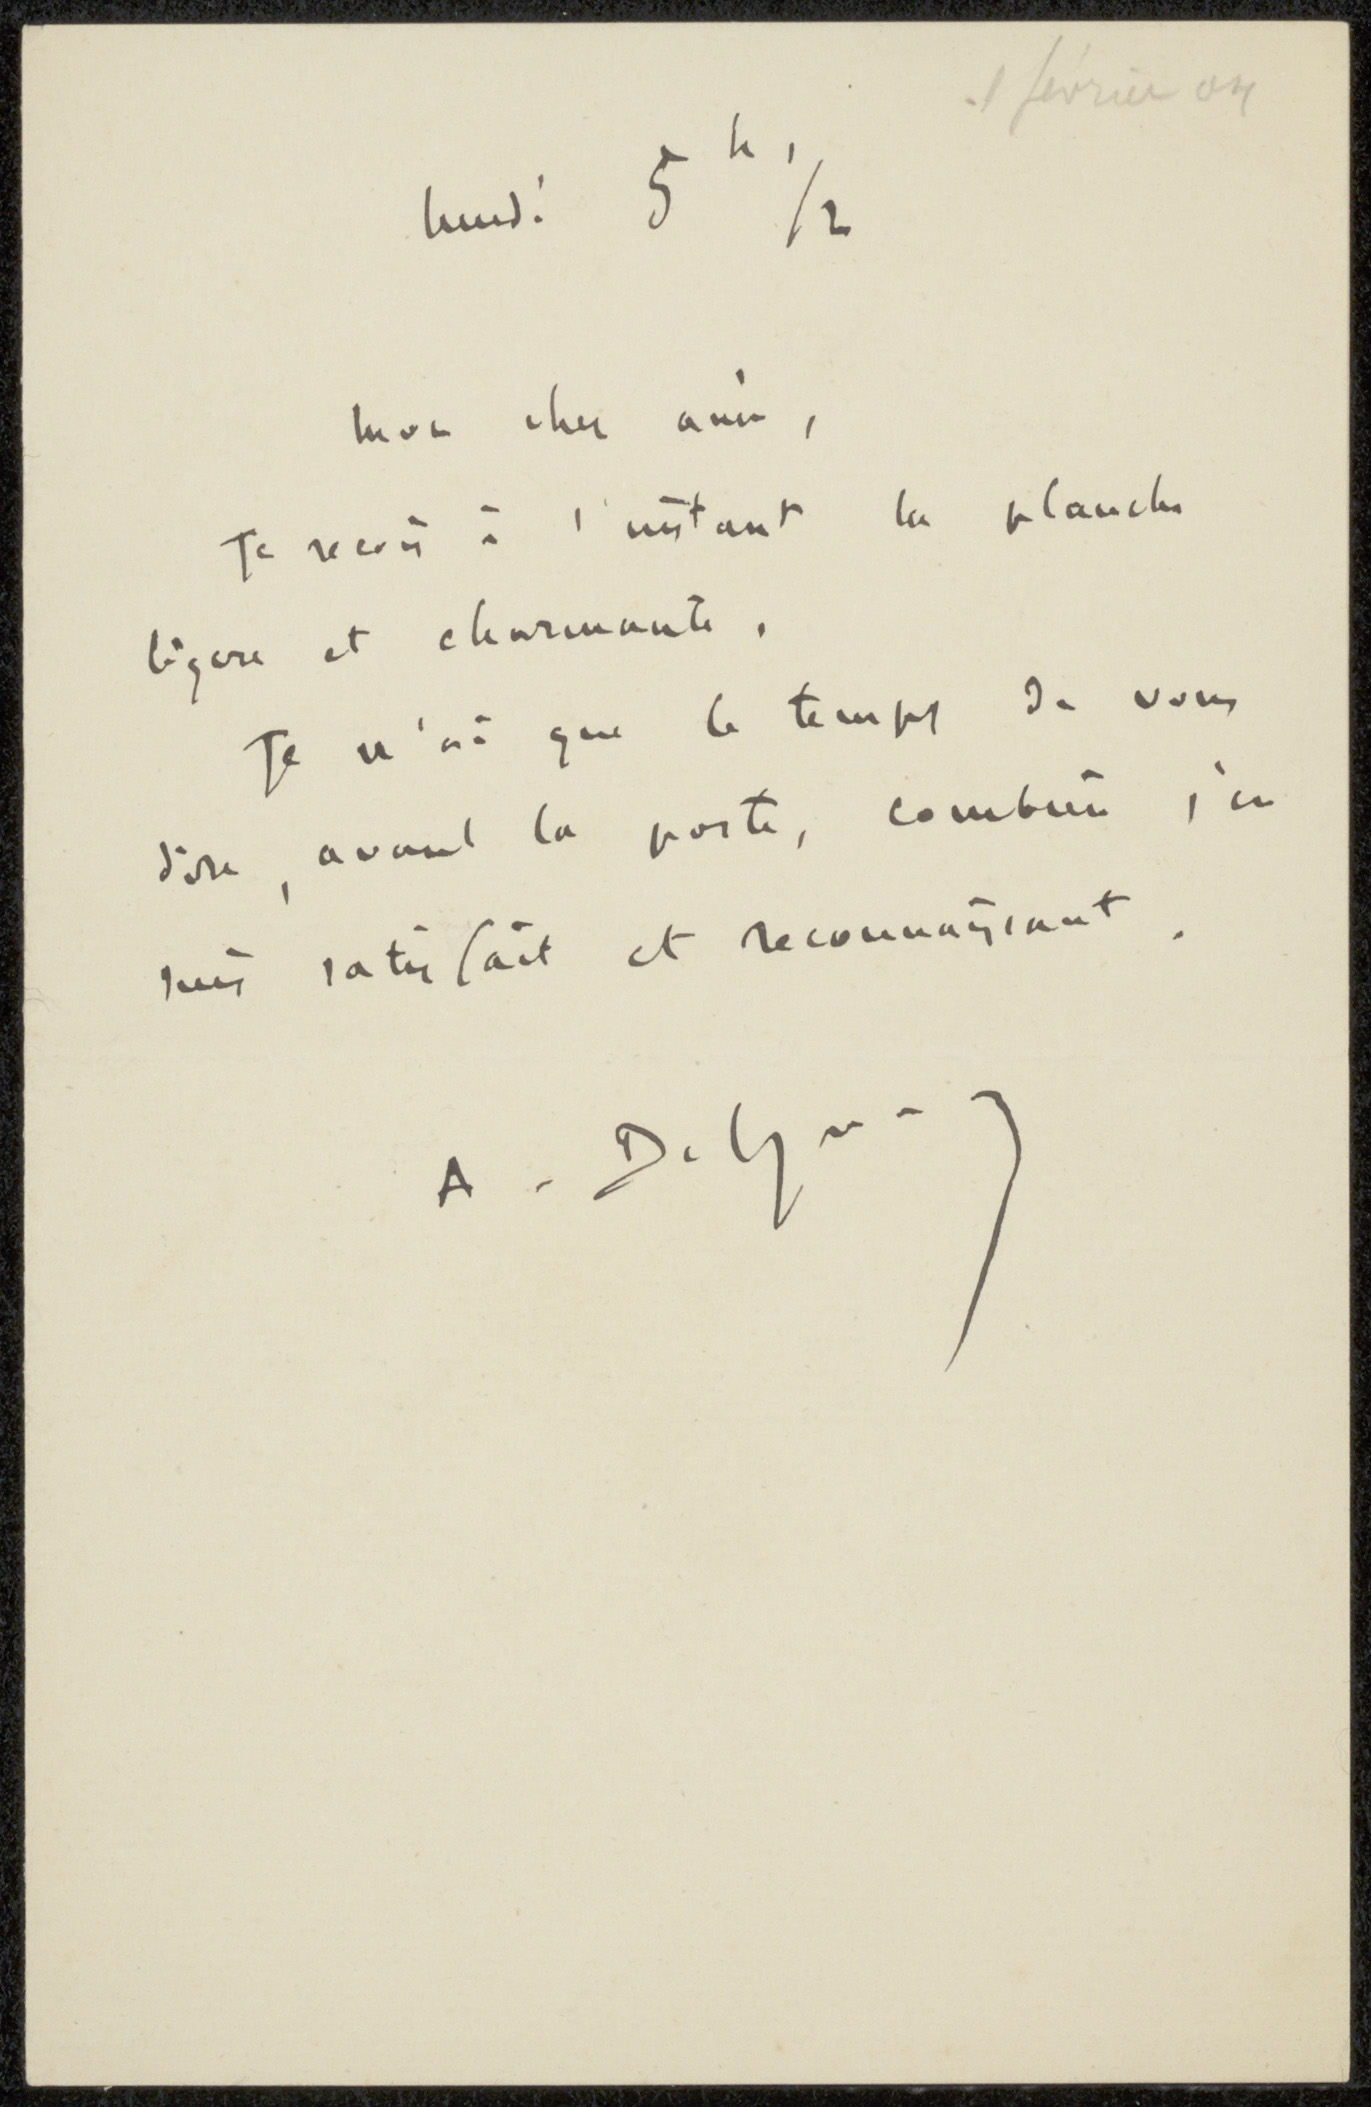 1 février 04
lundi 5 h 1/2
mon cher ami,
Je reçois à l'instant la planche
légère et charmante.
Je n'ai que le temps de vous
dire, avant la poste, combien j'en
suis satisfait et reconnaissant.
A.